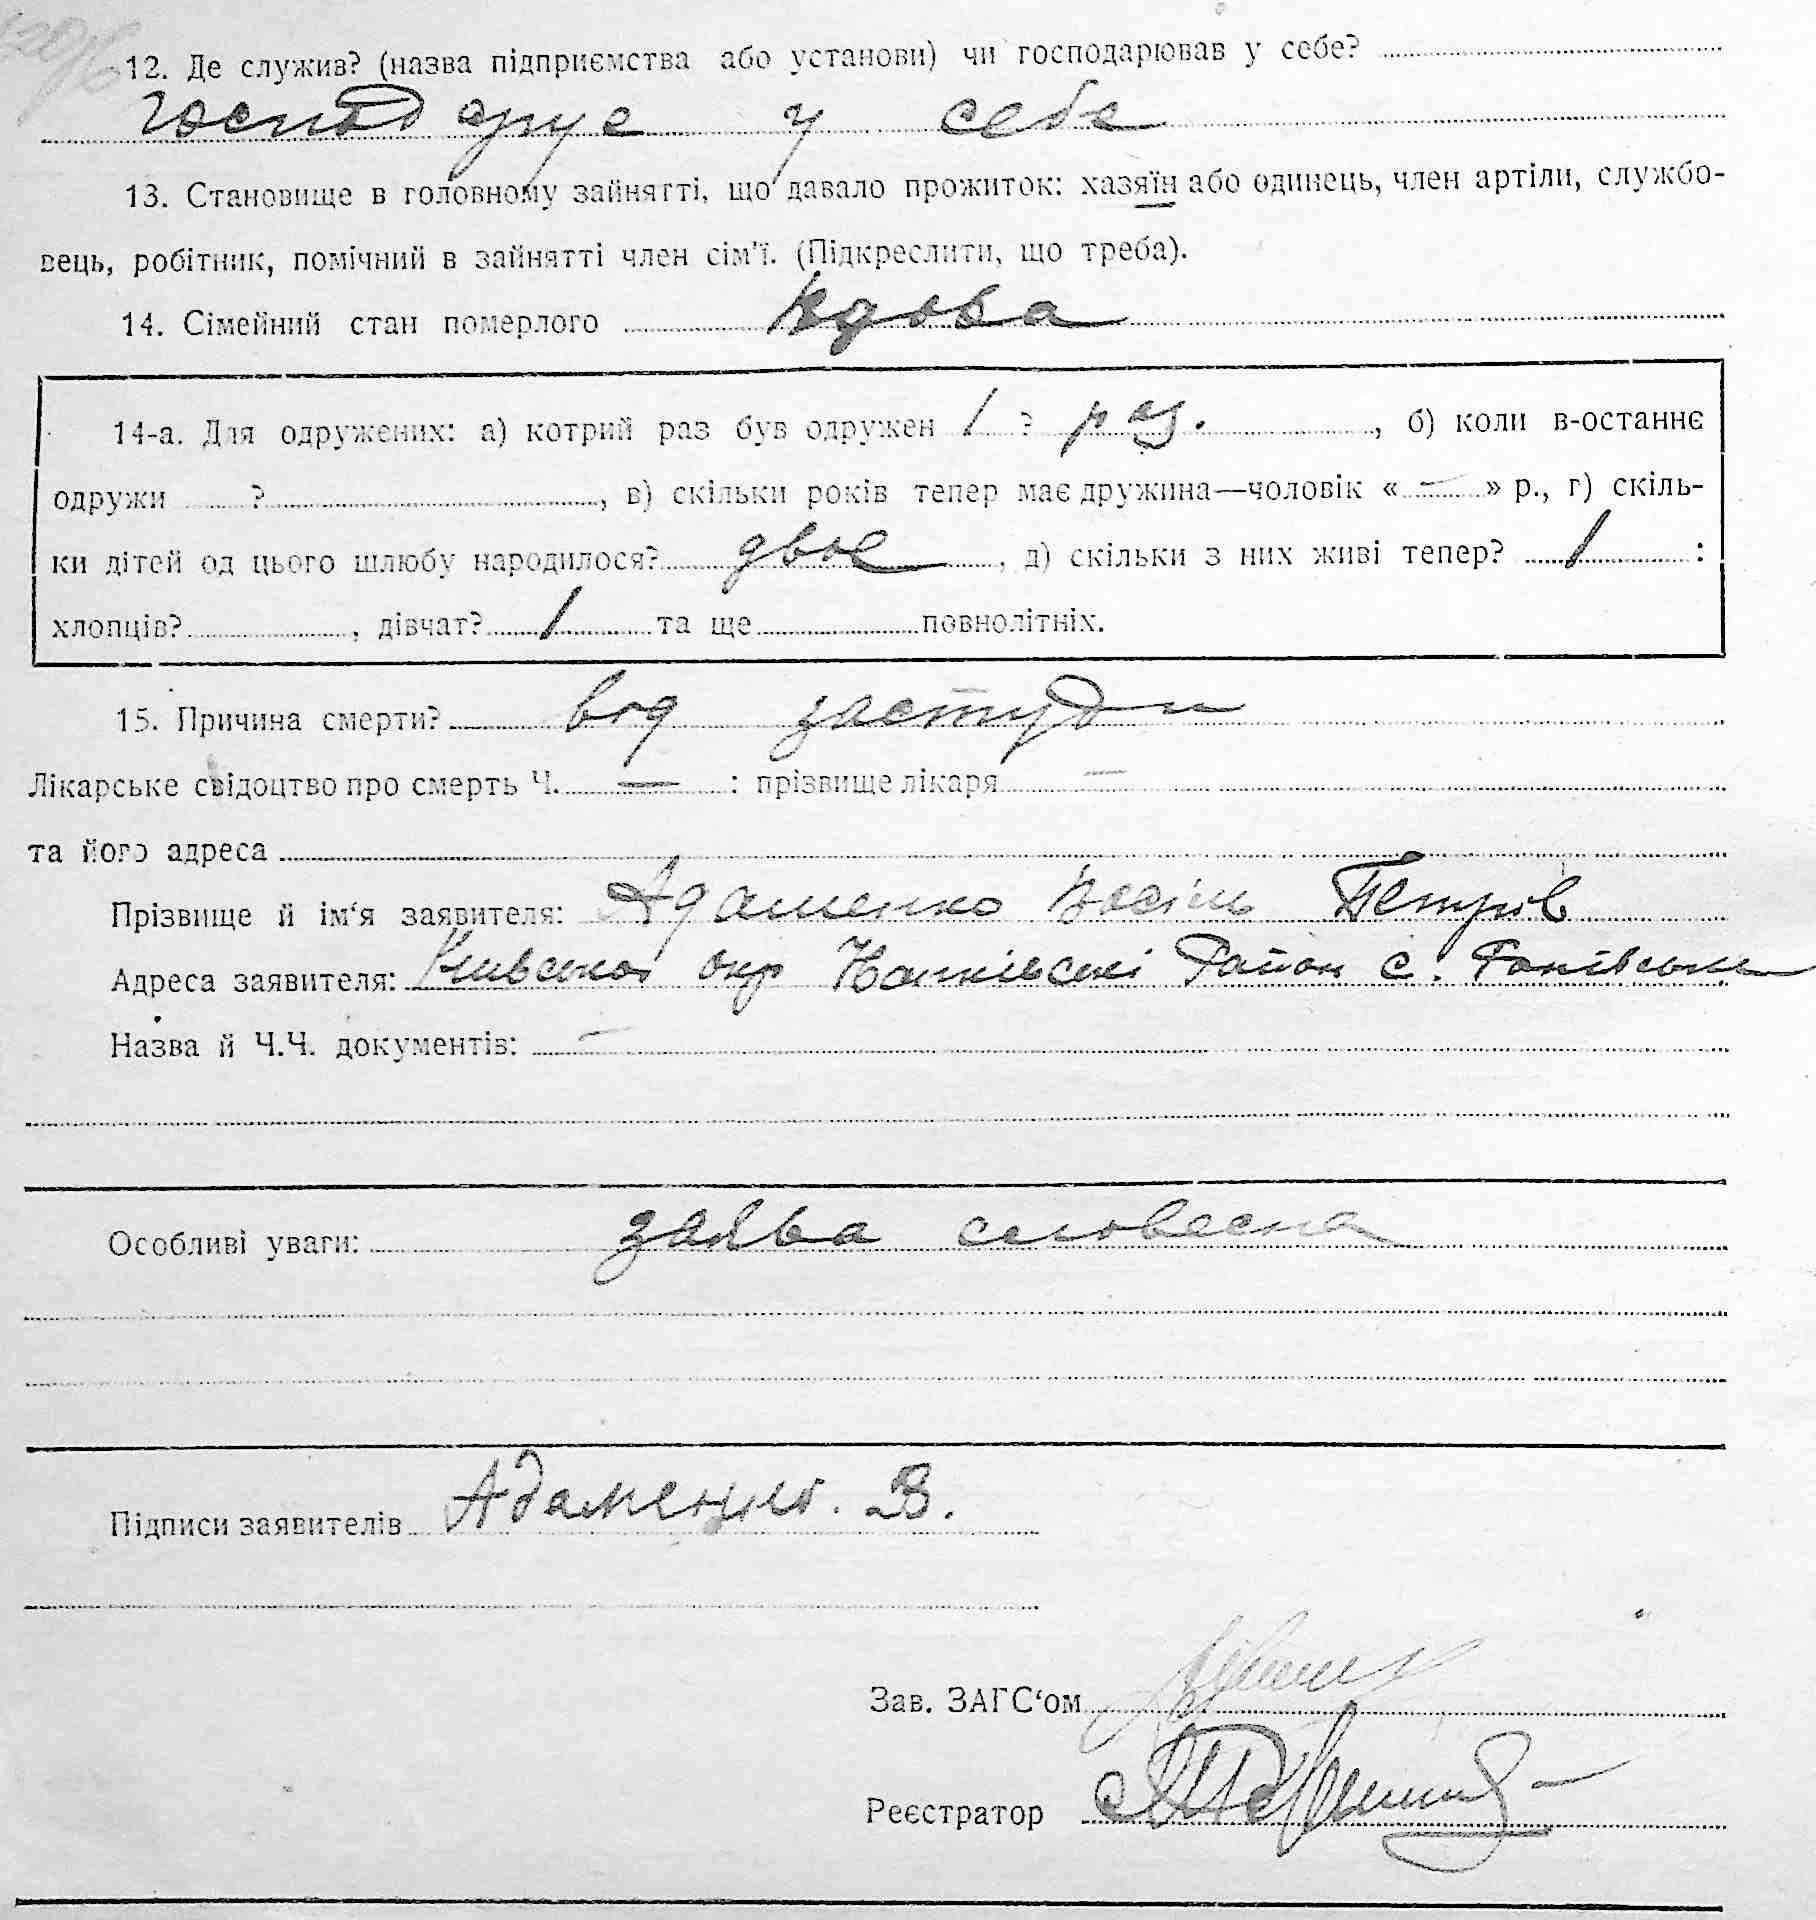 12. Де служив? (назва підприємства або установи) чи господарював у себе?
господарує у себе
13. Становище в головному зайнятті, що давало прожиток: хазяїн або одинець, член артіли, службо-
вець, робітник, помічний в зайнятті член сім'ї. (Підкреслити, що треба).
14. Сімейний стан померлого вдова
14-а. Для одружених: а) котрий раз був одружен 1 ? раз. , б) коли в-останнє
одружи ? , в) скільки років тепер має дружина—чоловік « — » р., г) скіль-
ки дітей од цього шлюбу народилося? двое , д) скільки з них живі тепер? 1 :
хлопців? , дівчат? 1 та ще повнолітніх.
15. Причина смерти? від застуди
Лікарське свідоцтво про смерть Ч. — : прізвище лікаря —
та його адреса
Прізвище й ім'я заявителя: Адаменко Васіль Петрів
Адреса заявителя: окр Район с.
Назва й Ч.Ч. документів: —
Особливі уваги: заява словесна
Підписи заявителів Адаменко. В.
Зав. ЗАГС'ом
Реєстратор